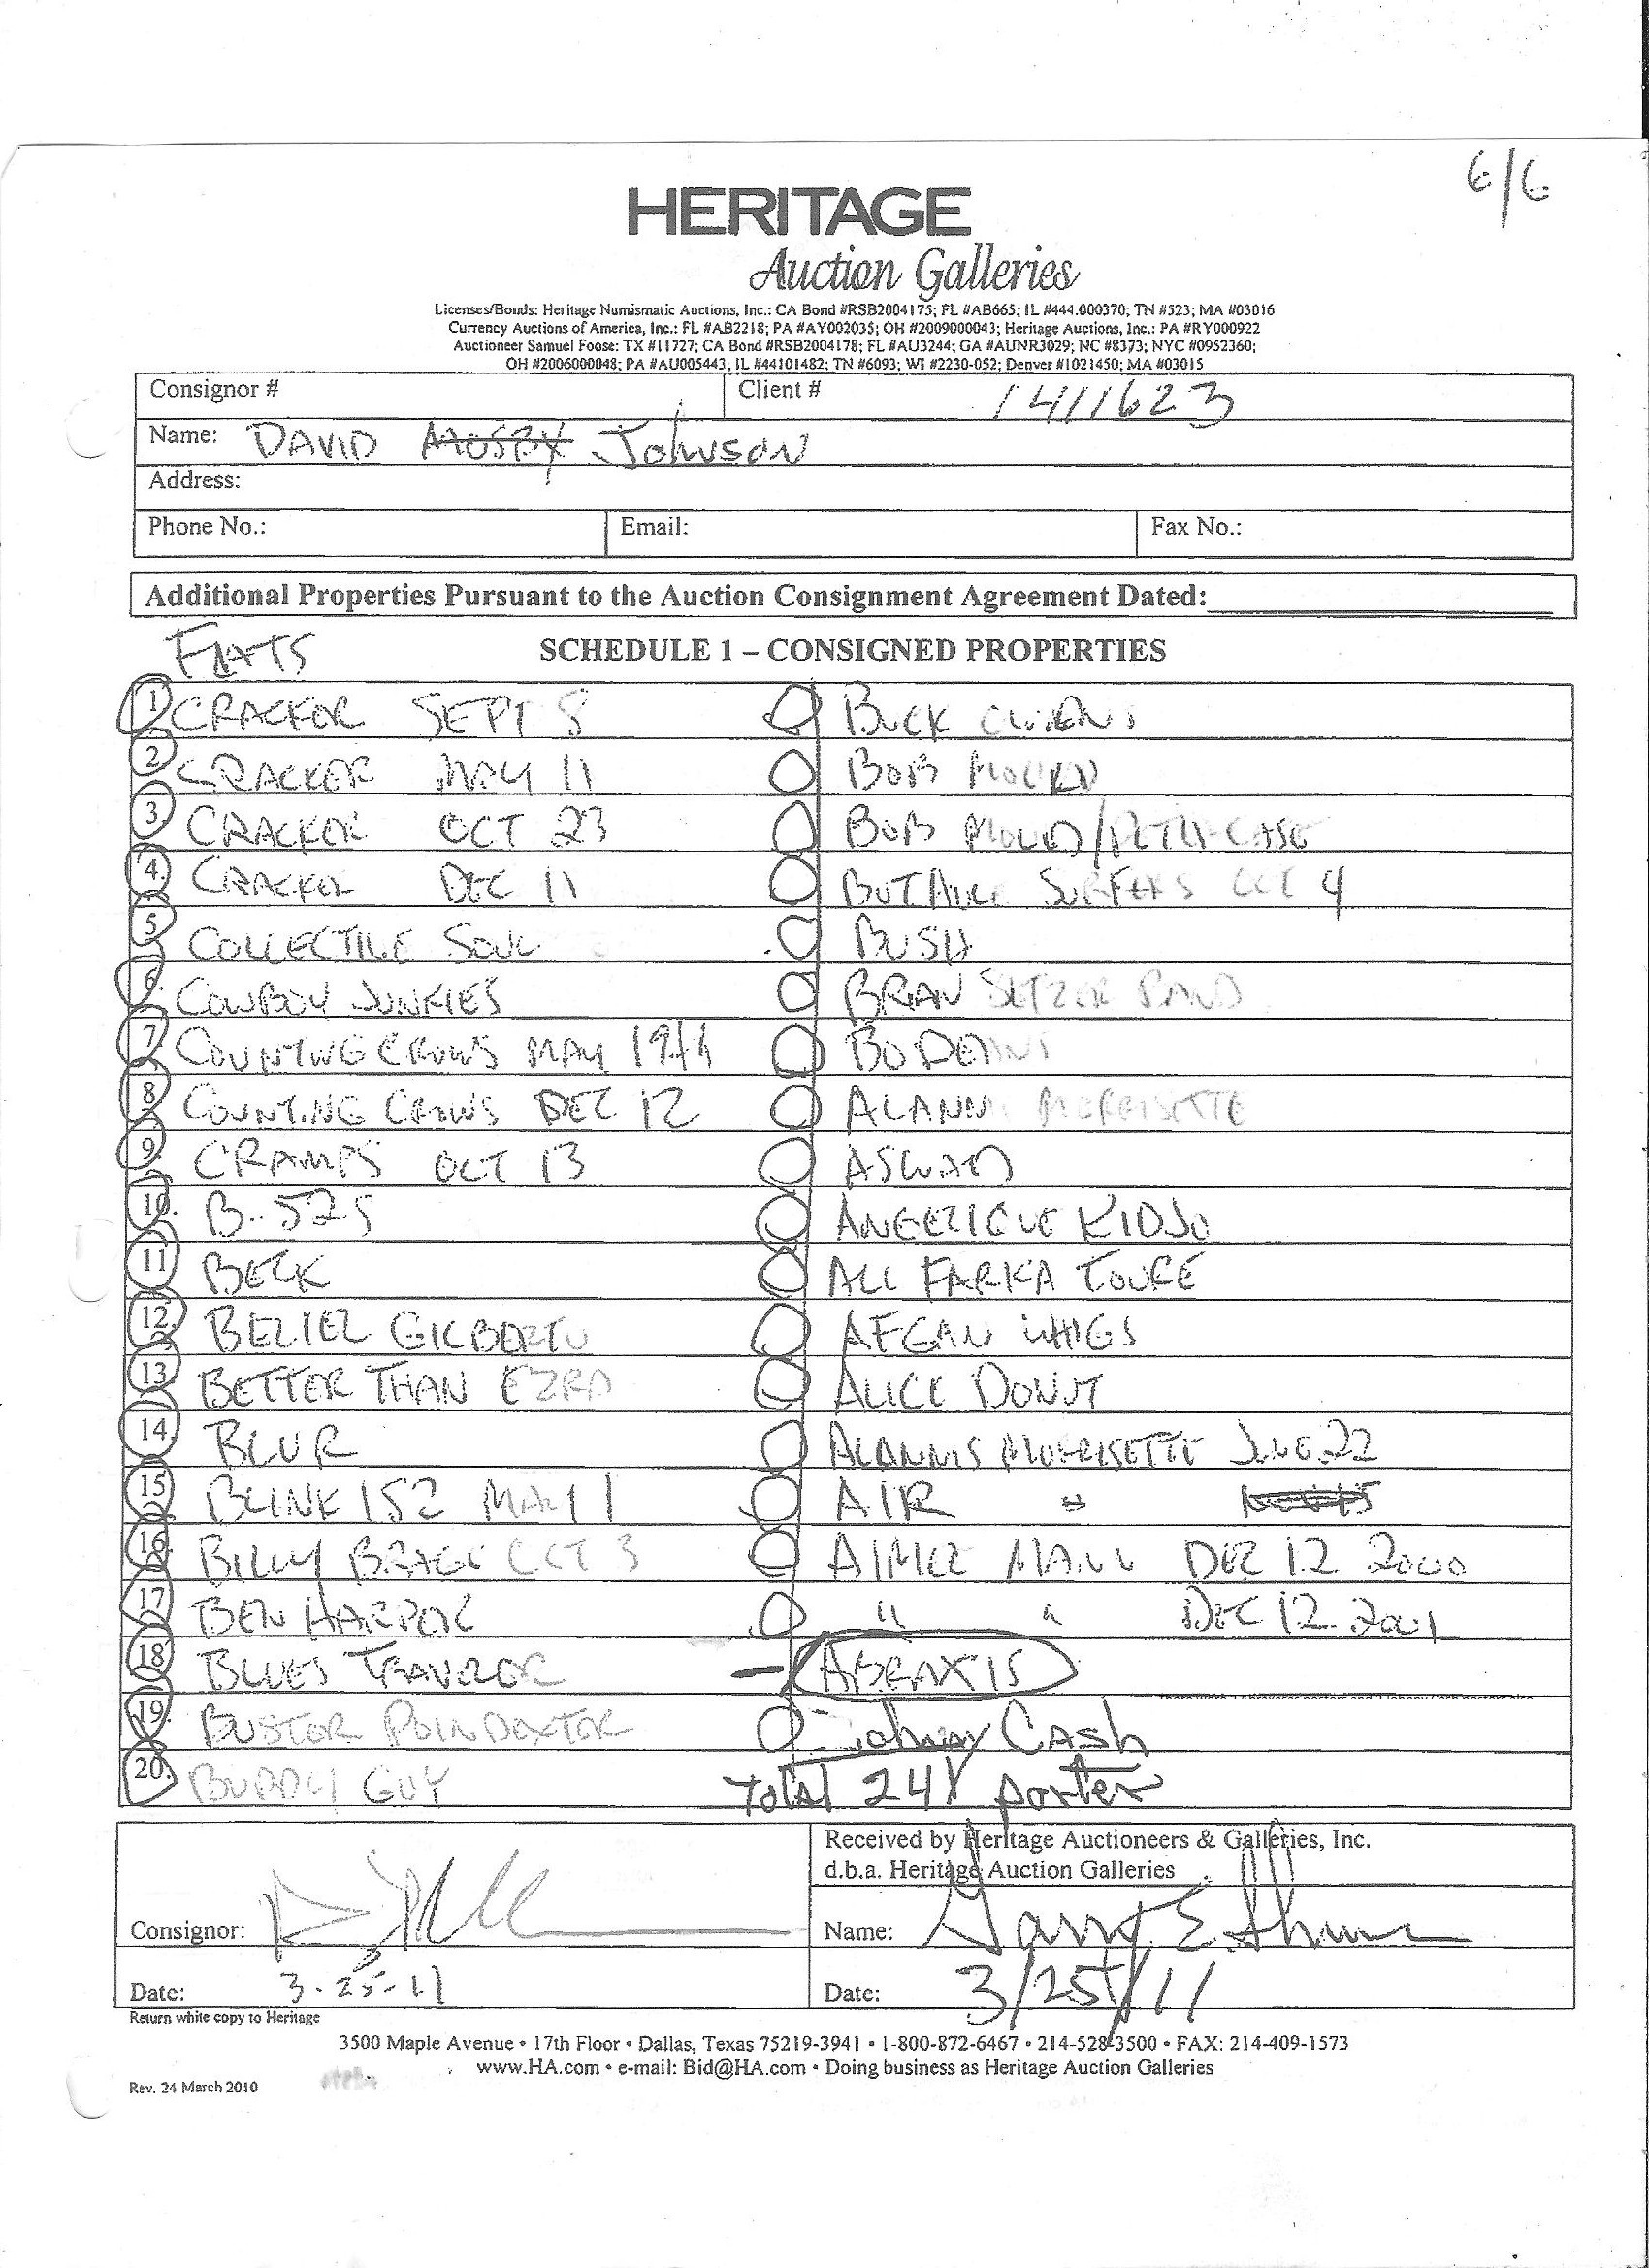 6/6
HERITAGE
Auction Galleries
Licenses/Bonds: Heritage Numismatic Auctions, Inc.: CA Bond #RSB2004175; FL #AB665; IL #444.000370; TN #523; MA #03016
Currency Auctions of America, Inc.: FL #AB2218; PA #AY002035; OH #2009000043; Heritage Auctions, Inc.: PA #RY000922
Auctioneer Samuel Foose: TX #11727; CA Bond #RSB2004178; FL #AU3244; GA #AUNR3029; NC #8373; NYC #0952360;
OH #2006000048; PA #AU005443; IL #44101482; TN #6093; WI #2230-052; Denver #1021450; MA #03015
Consignor # Client # 1411623
Name: DAVID MOSBY Johnson
Address:
Phone No.: Email: Fax No.:
Additional Properties Pursuant to the Auction Consignment Agreement Dated:
FLATS SCHEDULE 1 – CONSIGNED PROPERTIES
1. CRACKER SEPT 8 BUCK
2. CRACKER MAY 11 BOB MOULD
3. CRACKER OCT 23 BOB MOULD/PETER CASE
4. CRACKER DEC 11 SURFERS OCT 4
5. COLLECTIVE SOUL BUSH
6. COWBOY JUNKIES BRIAN SETZER BAND
7. COUNTING CROWS MAY BO DEANS
8. COUNTING CROWS DEC 12 MORRISETTE
9. CRAMPS OCT 13 ASWAD
10. B.. 52s ANGELIQUE KIDJO
11. BECK ALI FARKA TOURE
12. GILBERTO AFGAN WHIGS
13. BETTER THAN EZRA ALICE DONUT
14. BLUR ALANNIS MORRISETTE JUNE 22
15. BLINK 152 MAY 1 AIR
16. BILLY BRAGG OCT 3 AIMEE MANN DEC 12 2000
17. BEN HARPER " " DEC 12 2001
18. BLUES TRAVELOR - ABRAXIS
19. BUSTER POINDEXTER Johnny Cash
20. BUDDY GUY Total 241 poster
Received by Heritage Auctioneers & Galleries, Inc.
d.b.a. Heritage Auction Galleries
Consignor: Name:
Date: 3-25-11 Date: 3/25/11
Return white copy to Heritage
3500 Maple Avenue • 17th Floor • Dallas, Texas 75219-3941 • 1-800-872-6467 • 214-528-3500 • FAX: 214-409-1573
www.HA.com • e-mail: Bid@HA.com • Doing business as Heritage Auction Galleries
Rev. 24 March 2010